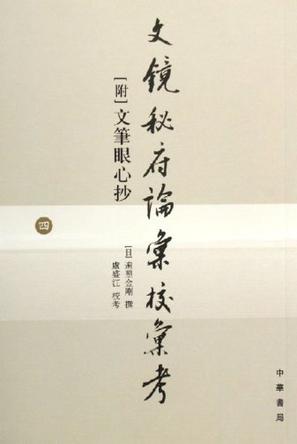 文镜秘府論彙校彙考
[附]文筆眼心抄
四
[日]遍照金剛 撰
盧盛江 校考
中華書局